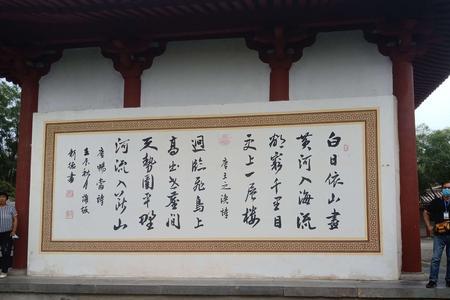 白日依山盡
黄河入海流
欲窮千里目
更上一層樓
唐王之渙詩
迥臨飛鳥上
高出世塵間
天勢圍平野
河流入斷山
唐暢當詩
壬辰秋月蒲坂
書